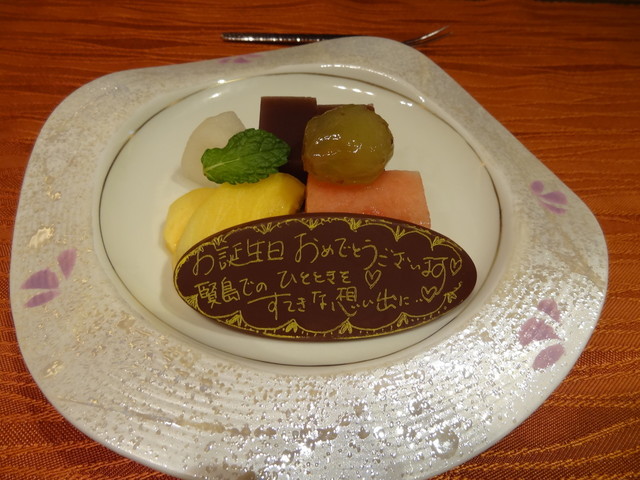 お誕生日 おめでとうございます♡
賢島での ひとときを♡
すてきな想い出に…♡